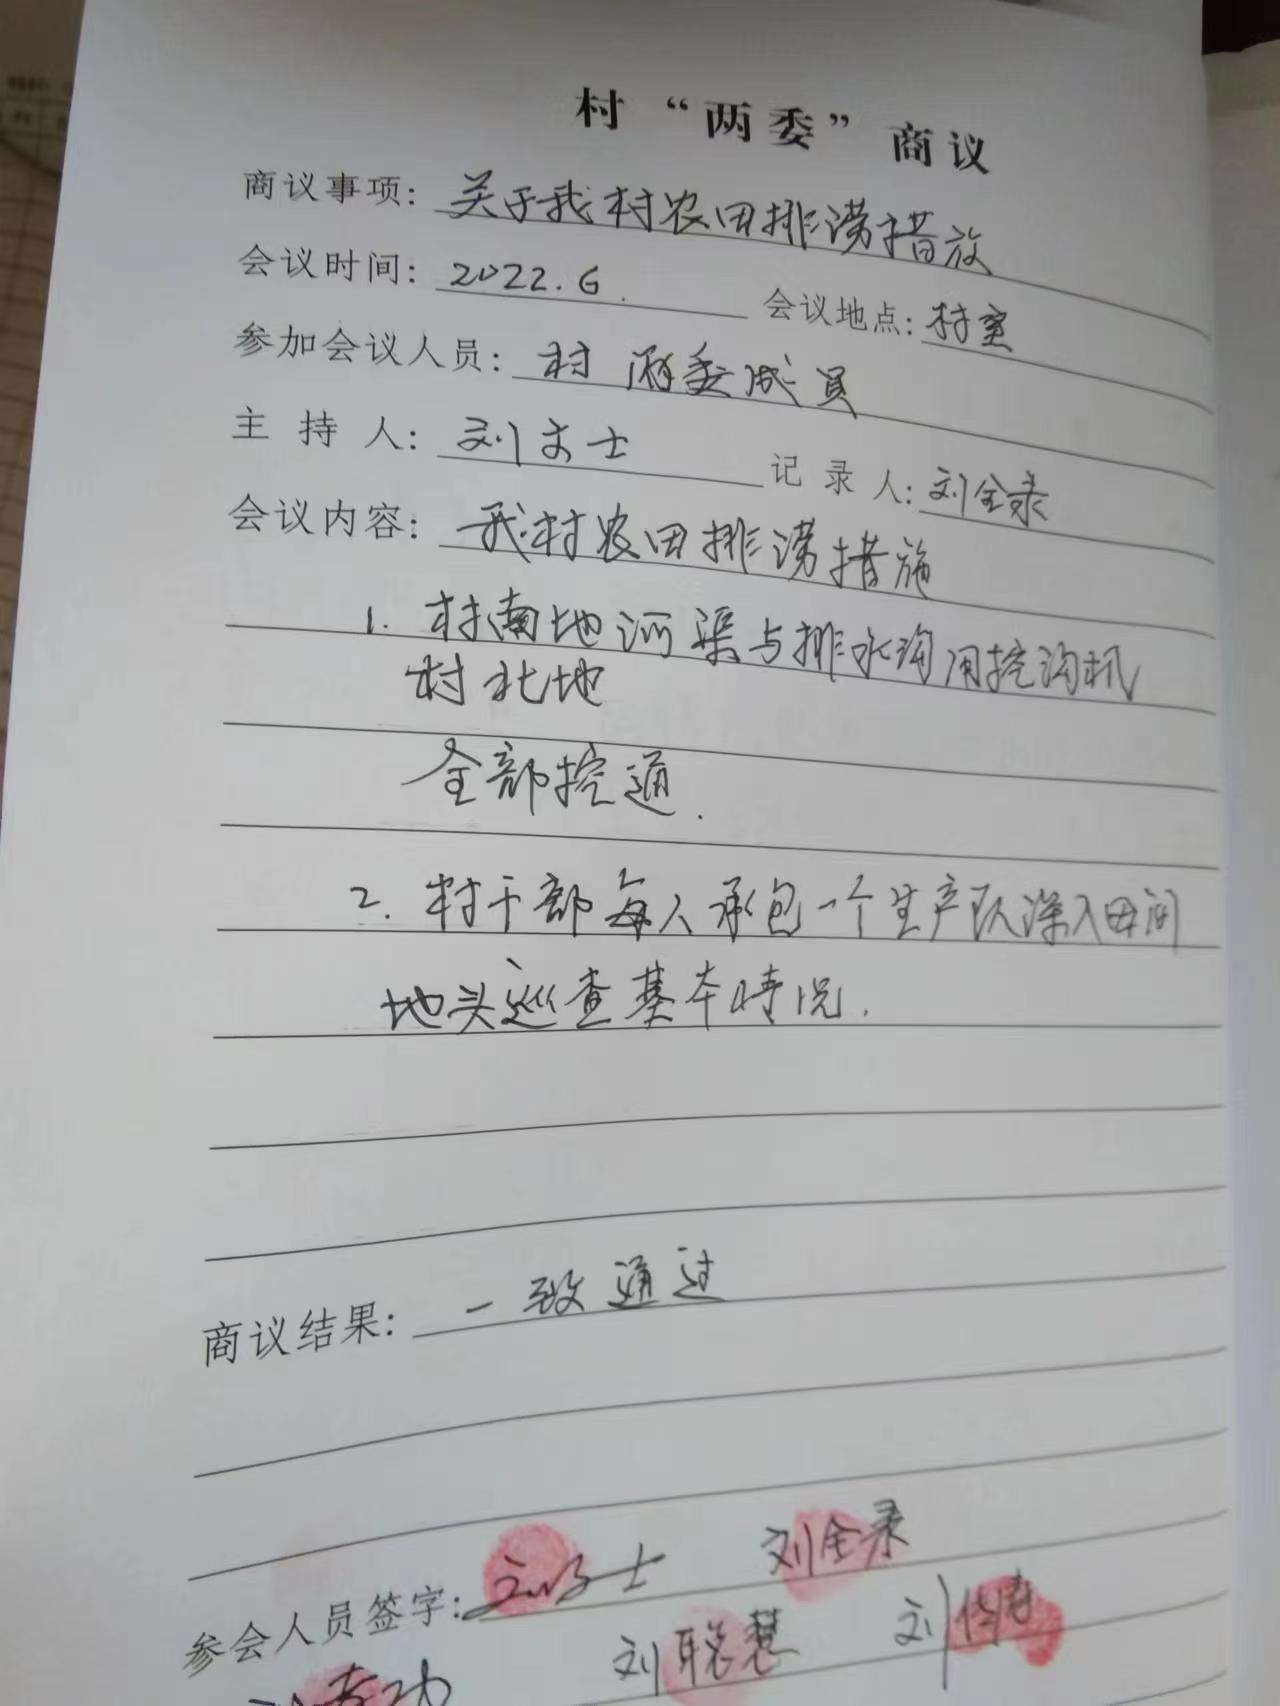 村“两委”商议
商议事项：关于我村农田排涝措放
会议时间：2022.6. 会议地点：村室
参加会议人员：村两委成员
主持人：刘文士 记录人：刘全录
会议内容：我村农田排涝措施
1. 村南地河渠与排水沟用挖沟机
村北地
全部挖通.
2. 村干部每人承包一个生产队深入田间
地头巡查基本情况.
商议结果：一致通过
参会人员签字：刘文士 刘全录
刘聪慧 刘